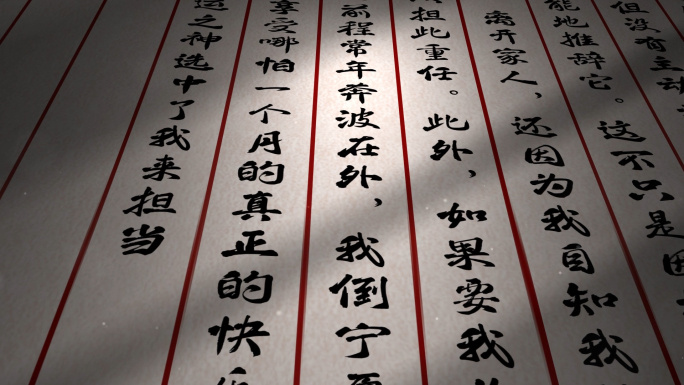 但没有主动
能地推辞它。这不只是因
离开家人，还因为我自知我
担此重任。此外，如果要我
前程常年奔波在外，我倒宁
享受哪怕一个月的真正的快
运之神选中了我来担当